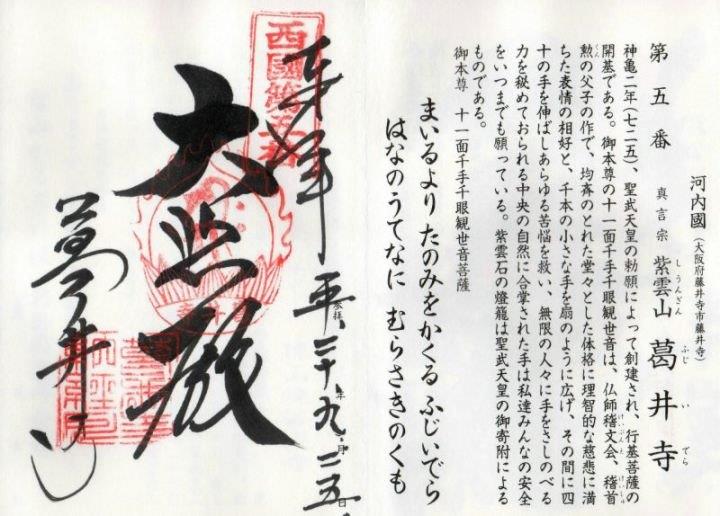 河内國（大阪府藤井寺市藤井寺）
第五番　真言宗　紫雲山　葛井寺
しうんざん　ふじいてら
神亀二年（七二五）、聖武天皇の勅願によって創建され、行基菩薩の
開基である。御本尊の十一面千手千眼観世音は、仏師稽文会、稽首
けいぶんえ　けいしゅ
勲の父子の作で、均斉のとれた堂々とした体格に理智的な慈悲に満
くん
ちた表情の相好と、千本の小さな手を扇のように広げ、その間に四
十の手を伸ばしあらゆる苦悩を救い、無限の人々に手をさしのべる
力を秘めておられる中央の自然に合掌された手は私達みんなの安全
をいつまでも願っている。紫雲石の燈籠は聖武天皇の御寄附による
ものである。
御本尊　十一面千手千眼観世音菩薩
まいるより たのみをかくる ふじいでら
はなのうてなに むらさきのくも
奉拝
参拝
平二十九年九月二五日
西國第五番
大悲殿
葛井寺